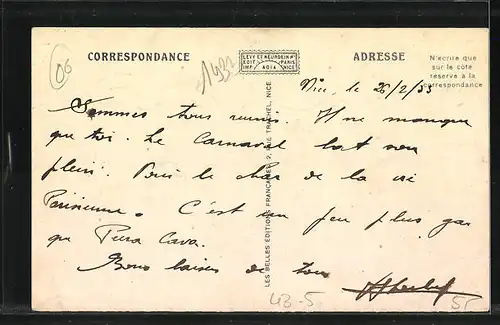 06
CORRESPONDANCE
LEVY ET NEURDEIN Rs
EDIT PARIS
IMP. ADIA NICE
ADRESSE
N'écrire que
sur le côté
réservé à la
correspondance
1932
Nice, le 26/2/33
Sommes tous reunis. Il ne manque
que toi. Le Carnaval bat son
plein. Voici le char de la vie
Parisienne. C'est un peu plus gai
que Peira Cava.
Bons baisers de tous
LES BELLES ÉDITIONS FRANÇAISES, 2, RUE TRACHEL, NICE